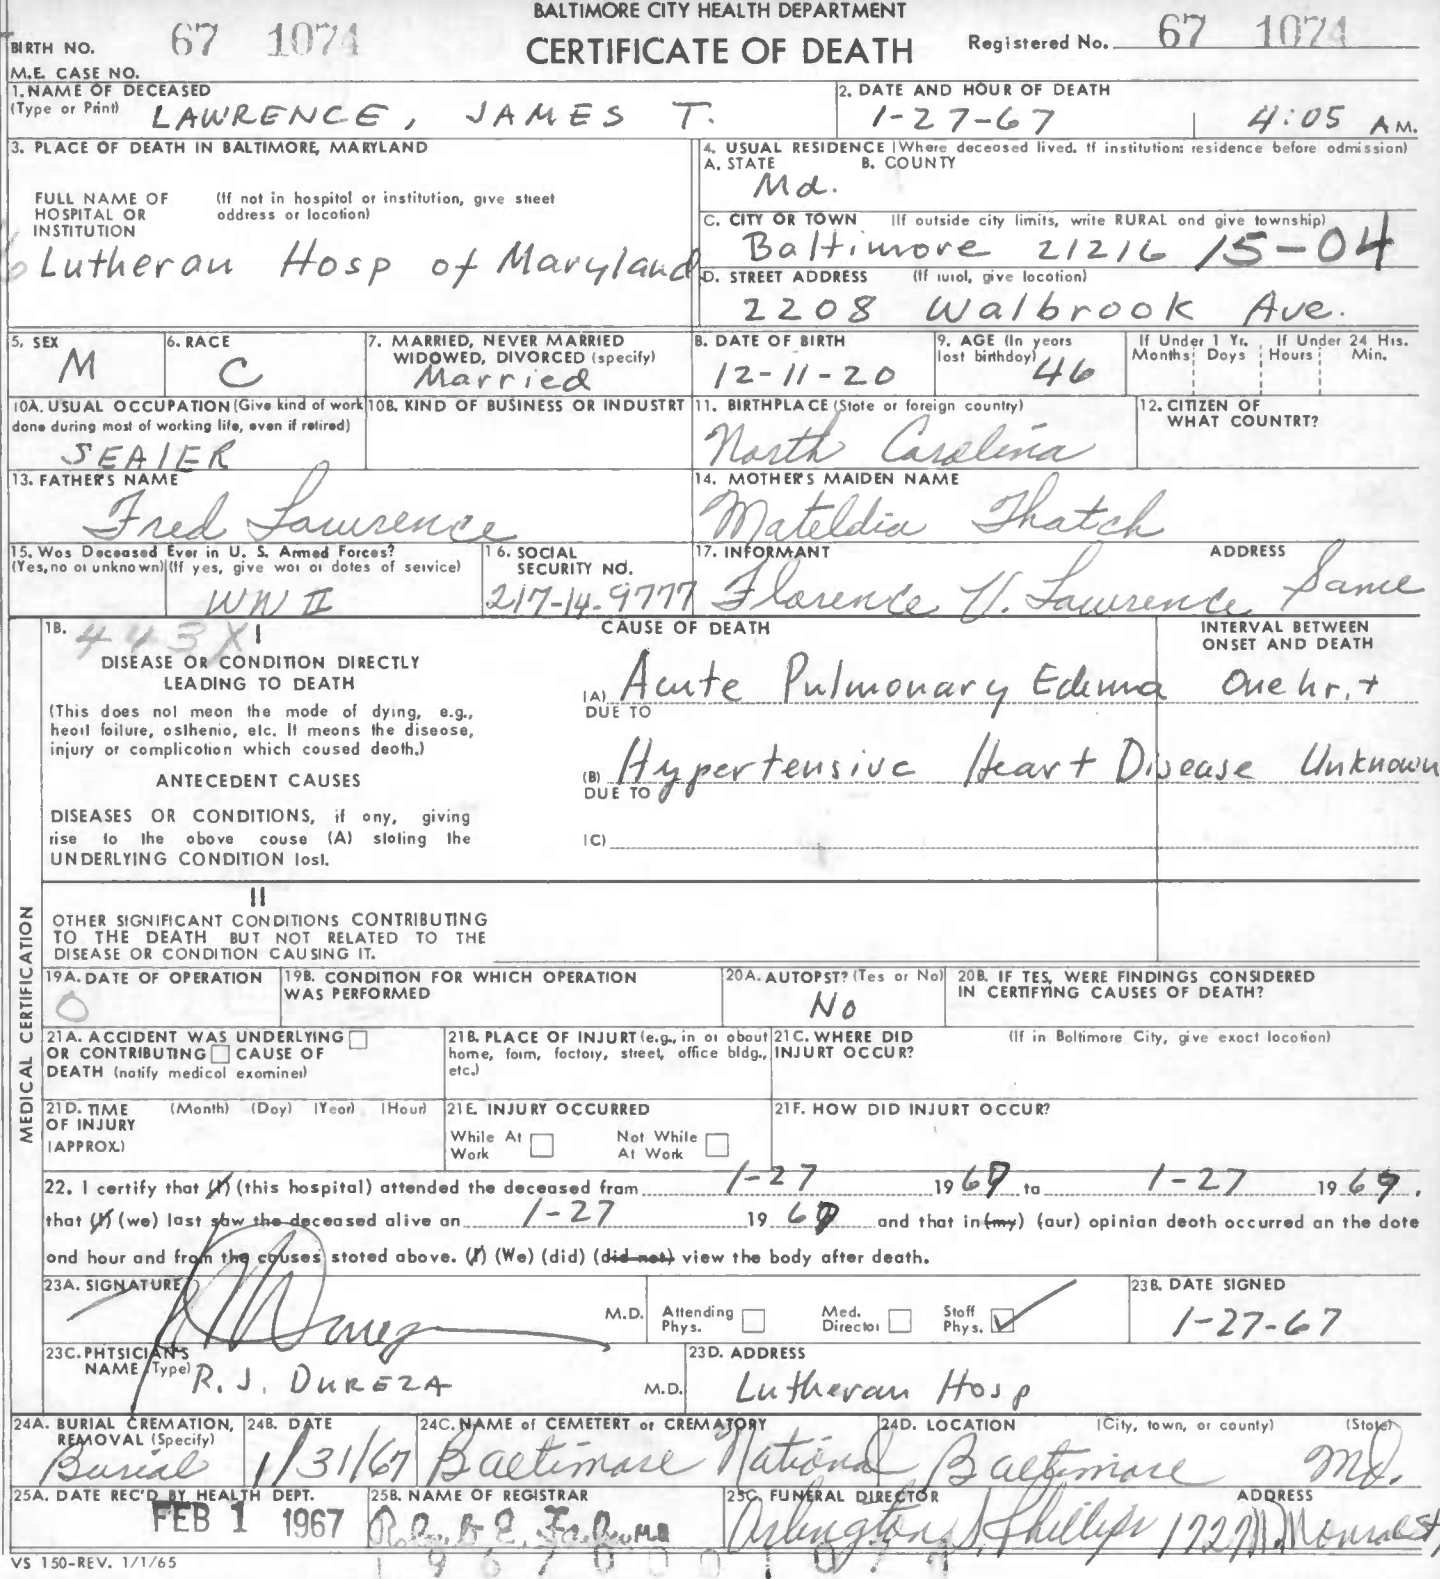 BALTIMORE CITY HEALTH DEPARTMENT
BIRTH NO. 67 1074 CERTIFICATE OF DEATH Registered No. 67 1074
M.E. CASE NO.
1. NAME OF DECEASED (Type or Print) LAWRENCE, JAMES T.
2. DATE AND HOUR OF DEATH 1-27-67 4:05 A M.
3. PLACE OF DEATH IN BALTIMORE, MARYLAND
FULL NAME OF HOSPITAL OR INSTITUTION (If not in hospital or institution, give street address or location)
Lutheran Hosp of Maryland
4. USUAL RESIDENCE (Where deceased lived. If institution: residence before admission)
A. STATE B. COUNTY
Md.
C. CITY OR TOWN (If outside city limits, write RURAL and give township)
Baltimore 21216 15-04
D. STREET ADDRESS (If rural, give location)
2208 Walbrook Ave.
5. SEX M
6. RACE C
7. MARRIED, NEVER MARRIED WIDOWED, DIVORCED (specify) Married
8. DATE OF BIRTH 12-11-20
9. AGE (In years last birthday) 46
If Under 1 Yr. Months Days If Under 24 Hrs. Hours Min.
10A. USUAL OCCUPATION (Give kind of work done during most of working life, even if retired) SEALER
10B. KIND OF BUSINESS OR INDUSTRY
11. BIRTHPLACE (State or foreign country) North Carolina
12. CITIZEN OF WHAT COUNTRY?
13. FATHER'S NAME Fred Lawrence
14. MOTHER'S MAIDEN NAME Mateldia Thatch
15. Was Deceased Ever in U. S. Armed Forces? (Yes, no or unknown) (If yes, give war or dates of service) WW II
16. SOCIAL SECURITY NO. 217-14-9777
17. INFORMANT ADDRESS
Florence V. Lawrence Same
MEDICAL CERTIFICATION
18. 443X I
CAUSE OF DEATH
INTERVAL BETWEEN ONSET AND DEATH
DISEASE OR CONDITION DIRECTLY LEADING TO DEATH
(This does not mean the mode of dying, e.g., heart failure, asthenia, etc. It means the disease, injury or complication which caused death.)
(A) Acute Pulmonary Edema One hr. +
DUE TO
ANTECEDENT CAUSES
(B) Hypertensive Heart Disease Unknown
DUE TO
DISEASES OR CONDITIONS, if any, giving rise to the above cause (A) stating the UNDERLYING CONDITION last.
(C)
II
OTHER SIGNIFICANT CONDITIONS CONTRIBUTING TO THE DEATH BUT NOT RELATED TO THE DISEASE OR CONDITION CAUSING IT.
19A. DATE OF OPERATION 0
19B. CONDITION FOR WHICH OPERATION WAS PERFORMED
20A. AUTOPSY? (Yes or No) No
20B. IF YES, WERE FINDINGS CONSIDERED IN CERTIFYING CAUSES OF DEATH?
21A. ACCIDENT WAS UNDERLYING OR CONTRIBUTING CAUSE OF DEATH (notify medical examiner)
21B. PLACE OF INJURY (e.g., in or about home, farm, factory, street, office bldg., etc.)
21C. WHERE DID INJURY OCCUR? (If in Baltimore City, give exact location)
21D. TIME OF INJURY (APPROX.) (Month) (Day) (Year) (Hour)
21E. INJURY OCCURRED While At Work Not While At Work
21F. HOW DID INJURY OCCUR?
22. I certify that (I) (this hospital) attended the deceased from 1-27 1967 to 1-27 1967,
that (I) (we) last saw the deceased alive on 1-27 1967 and that in (my) (our) opinion death occurred on the date
and hour and from the causes stated above. (I) (We) (did) (did not) view the body after death.
23A. SIGNATURE M.D. Attending Phys. Med. Director Staff Phys. ✓
23B. DATE SIGNED 1-27-67
23C. PHYSICIAN'S NAME (Type) R. J. DUREZA M.D.
23D. ADDRESS Lutheran Hosp
24A. BURIAL CREMATION, REMOVAL (Specify) Burial
24B. DATE 1/31/67
24C. NAME of CEMETERY or CREMATORY Baltimore National
24D. LOCATION (City, town, or county) (State) Baltimore Md.
25A. DATE REC'D BY HEALTH DEPT. FEB 1 1967
25B. NAME OF REGISTRAR Robert E. Farber, M.D.
25C. FUNERAL DIRECTOR ADDRESS
Arlington S. Phillips 1727 N. Monroe St
VS 150-REV. 1/1/65